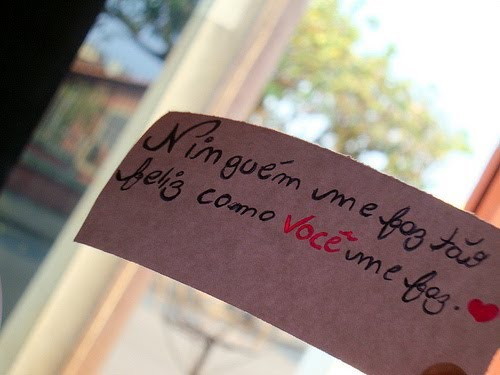 Ninguém me faz tão
feliz como você me faz.